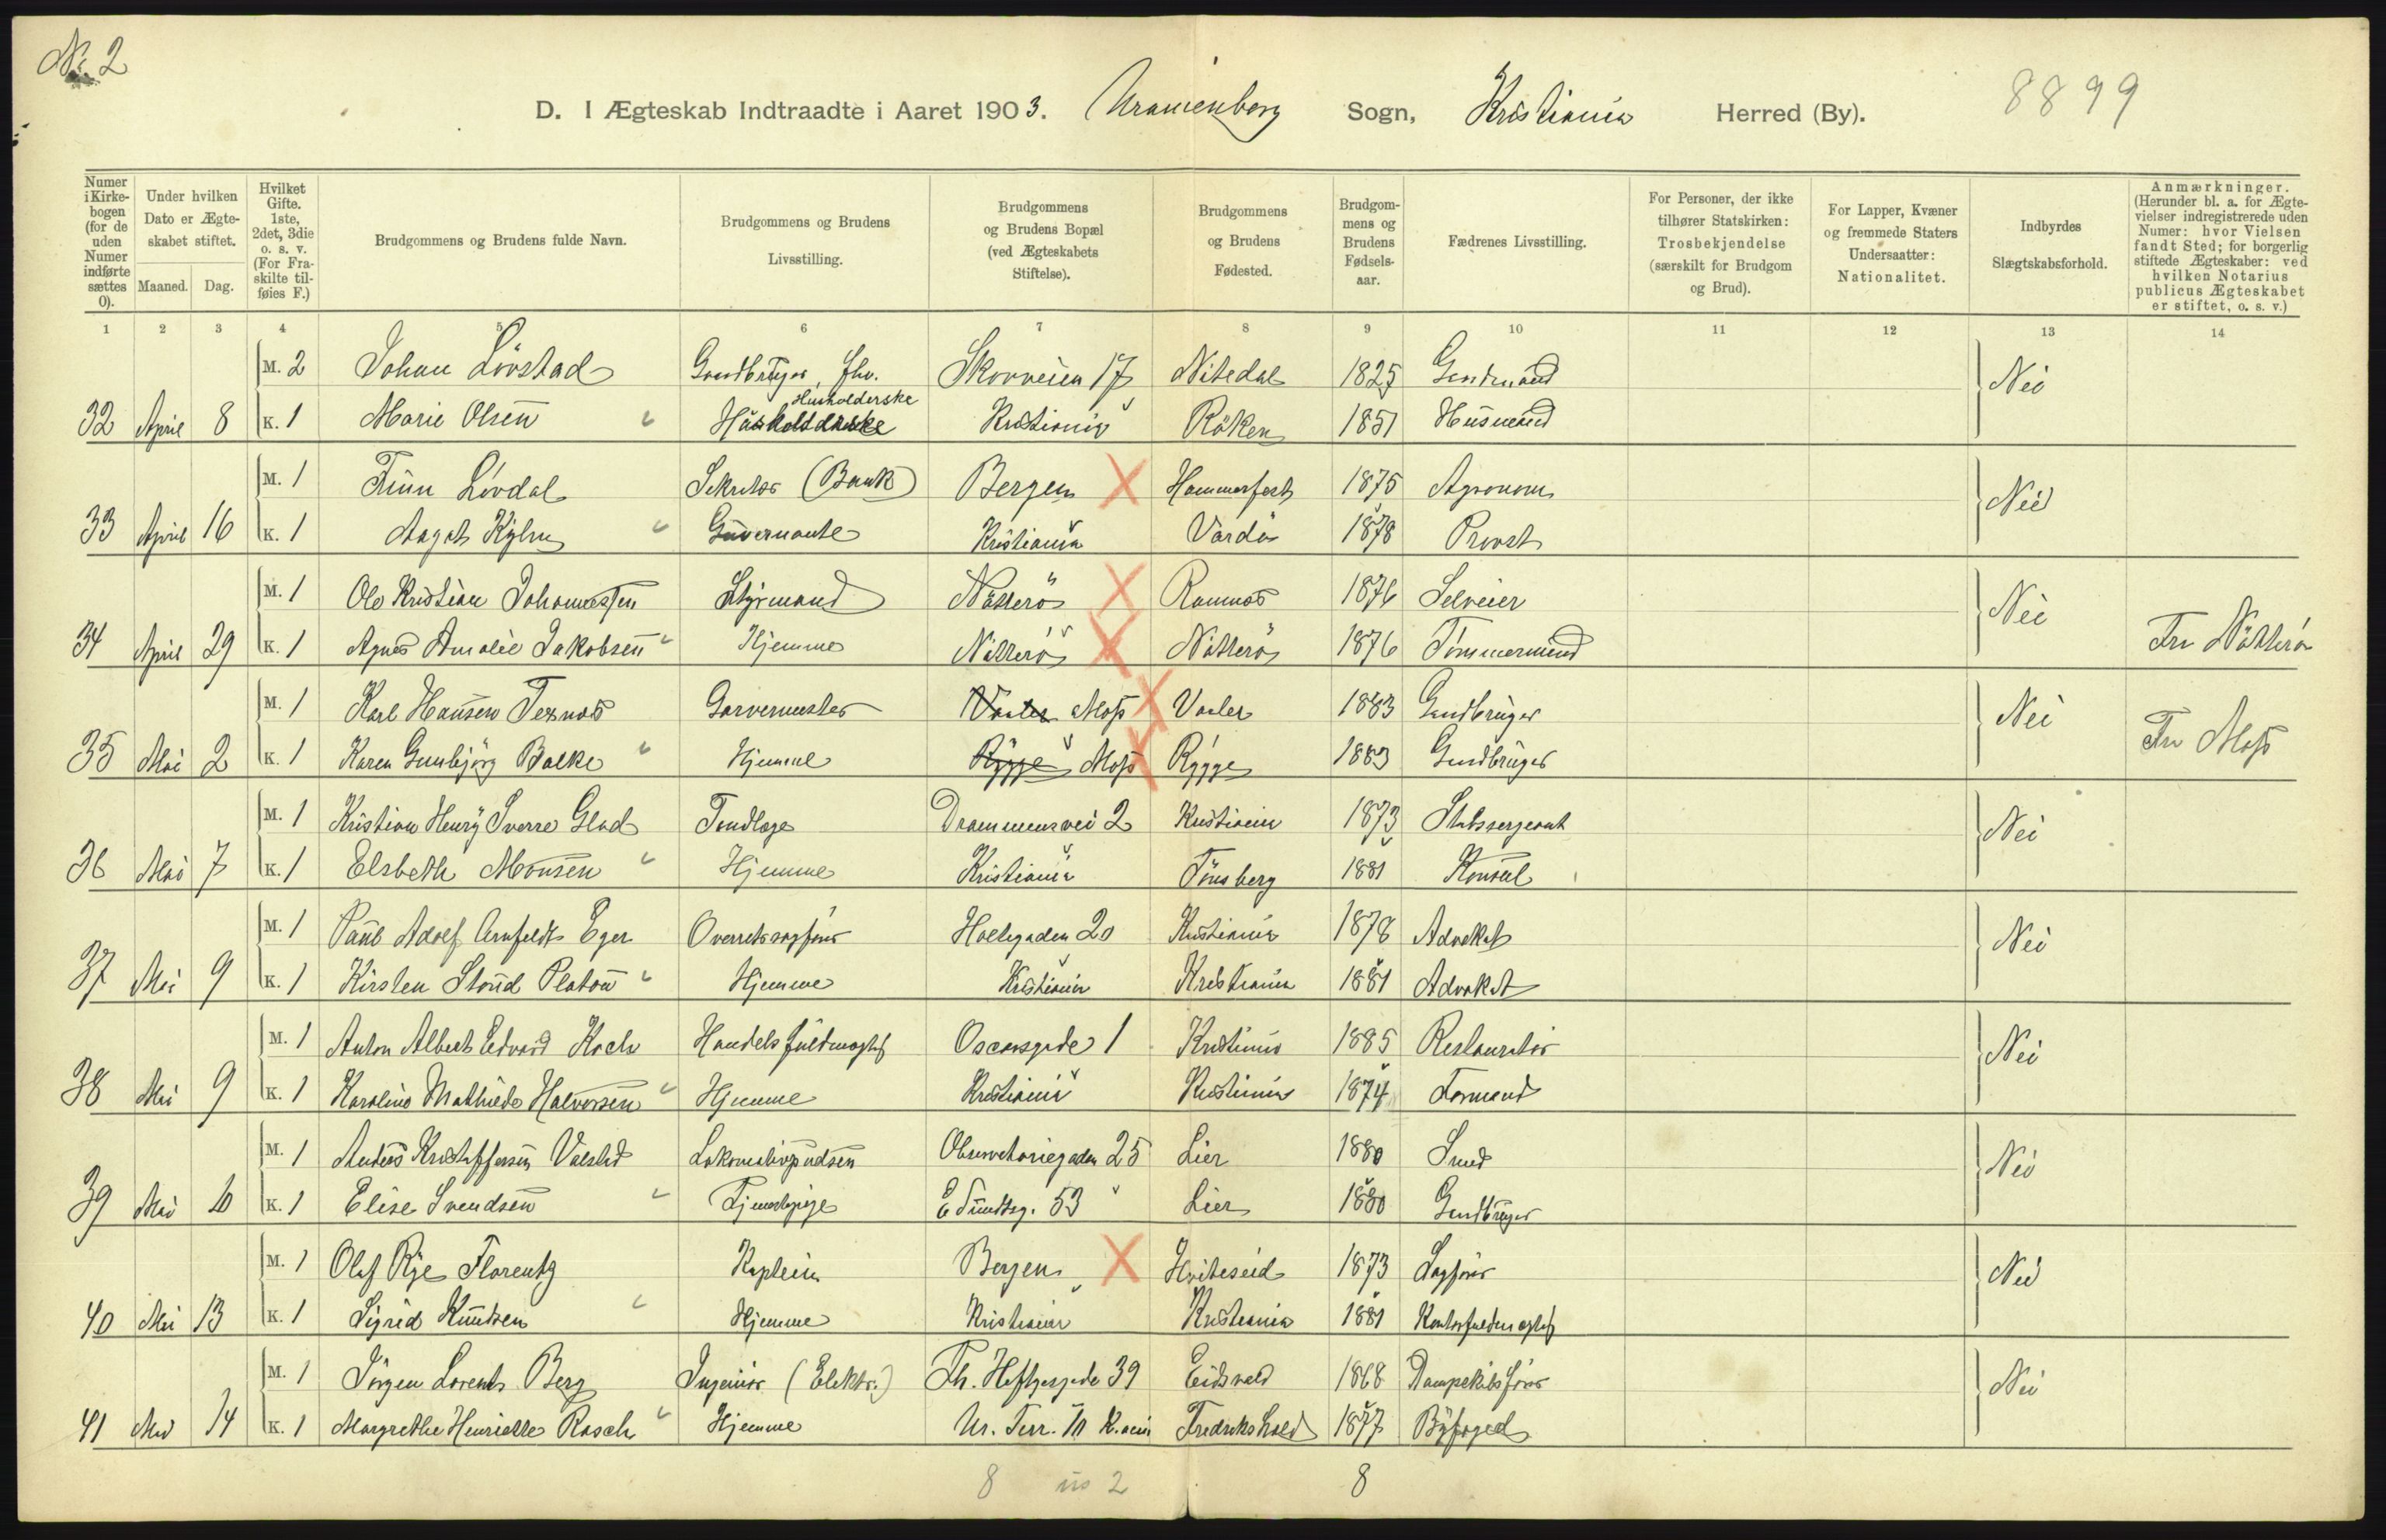 No. 2
8899
D. I Ægteskab Indtraadte i Aaret 1903. Uranienborg Sogn, Kristiania Herred (By).
Numer i Kirkebogen (for de uden Numer indførte sættes 0).
Under hvilken Dato er Ægteskabet stiftet.
Maaned. Dag.
Hvilket Gifte. 1ste, 2det, 3die o. s. v. (For Fraskilte tilføies F.)
Brudgommens og Brudens fulde Navn.
Brudgommens og Brudens Livsstilling.
Brudgommens og Brudens Bopæl (ved Ægteskabets Stiftelse).
Brudgommens og Brudens Fødested.
Brudgommens og Brudens Fødselsaar.
Fædrenes Livsstilling.
For Personer, der ikke tilhører Statskirken: Trosbekjendelse (særskilt for Brudgom og Brud).
For Lapper, Kvæner og fremmede Staters Undersaatter: Nationalitet.
Indbyrdes Slægtskabsforhold.
Anmærkninger. (Herunder bl. a. for Ægtevielser indregistrerede uden Numer: hvor Vielsen fandt Sted; for borgerlig stiftede Ægteskaber: ved hvilken Notarius publicus Ægteskabet er stiftet, o. s. v.)
1 2 3 4 5 6 7 8 9 10 11 12 13 14
M. 2 Johan Lövstad Gaardbruger, fhv. Skovveien 17 Nitedal 1825 Gardmand Nei
Husholderske
32 April 8 K. 1 Marie Olsen Kristiania Röken 1851 Husmand
M. 1 Finn Lövdal Sekretær (Bank) Bergen Hammerfest 1875 Agronom Nei
33 April 16 K. 1 Aagot Guvernante Kristiania Vardö 1878 Provst
M. 1 Ole Kristian Johannessen Styrmand Nötterö Ramnæs 1876 Selveier Nei
34 April 29 K. 1 Agnes Amalie Jakobsen Hjemme Nötterö Nötterö 1876 Tömmermand Fra Nötterö
M. 1 Karl Hansen Garvermester Vaaler Moss Vaaler 1883 Gardbruger Nei
35 Mai 2 K. 1 Karen Gunbjörg Bakke Hjemme Rygge Moss Rygge 1883 Gardbruger Fra Moss
M. 1 Kristian Henry Sverre Glad Tandlæge Drammensvei 2 Kristiania 1873 Stabssergeant Nei
36 Mai 7 K. 1 Elsbeth Monsen Hjemme Kristiania Tönsberg 1881 Konsul
M. 1 Paul Adolf Arnfeldt Eger Overretssagförer Holtegaden 20 Kristiania 1878 Advokat Nei
37 Mai 9 K. 1 Kirsten Stoud Platou Hjemme Kristiania Kristiania 1881 Advokat
M. 1 Anton Albert Edvard Koch Handelsfuldmægtig Oscarsgade 1 Kristiania 1885 Restauratör Nei
38 Mai 9 K. 1 Karoline Mathilde Halvorsen Hjemme Kristiania Kristiania 1874 Formand
M. 1 Anders Kristoffersen Valstad Lokomotivpudser Observatoriegaden 25 Lier 1880 Smed Nei
39 Mai 10 K. 1 Elise Svendsen Tjenestepige E. Sundtsg. 53 Lier 1880 Gardbruger
M. 1 Olaf Rye Florentz Kaptein Bergen Hviteseid 1873 Sagförer Nei
40 Mai 13 K. 1 Sigrid Knudsen Hjemme Kristiania Kristiania 1881 Kontorfuldmægtig
M. 1 Jörgen Lorentz Berg Ingeniör (Elektr.) Th. Heftyesgade 39 Eidsvold 1868 Dampskibsförer Nei
41 Mai 14 K. 1 Margrethe Henriette Rasch Hjemme Ur. Terr. Fredrikshald 1877 Byfoged
8 2 8